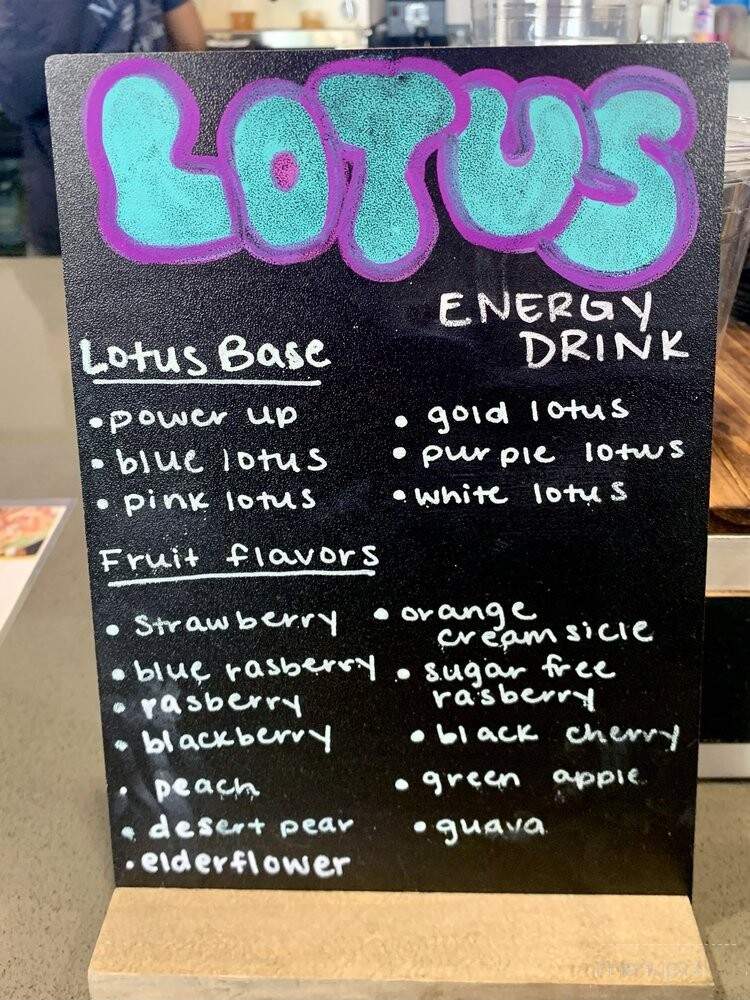 LOTUS
ENERGY
DRINK
Lotus Base
• power up
• blue lotus
• pink lotus
• gold lotus
• purple lotus
• white lotus
Fruit flavors
• strawberry
• blue rasberry
• rasberry
• blackberry
• peach
• desert pear
• elderflower
• orange
creamsicle
• sugar free
rasberry
• black cherry
• green apple
• guava